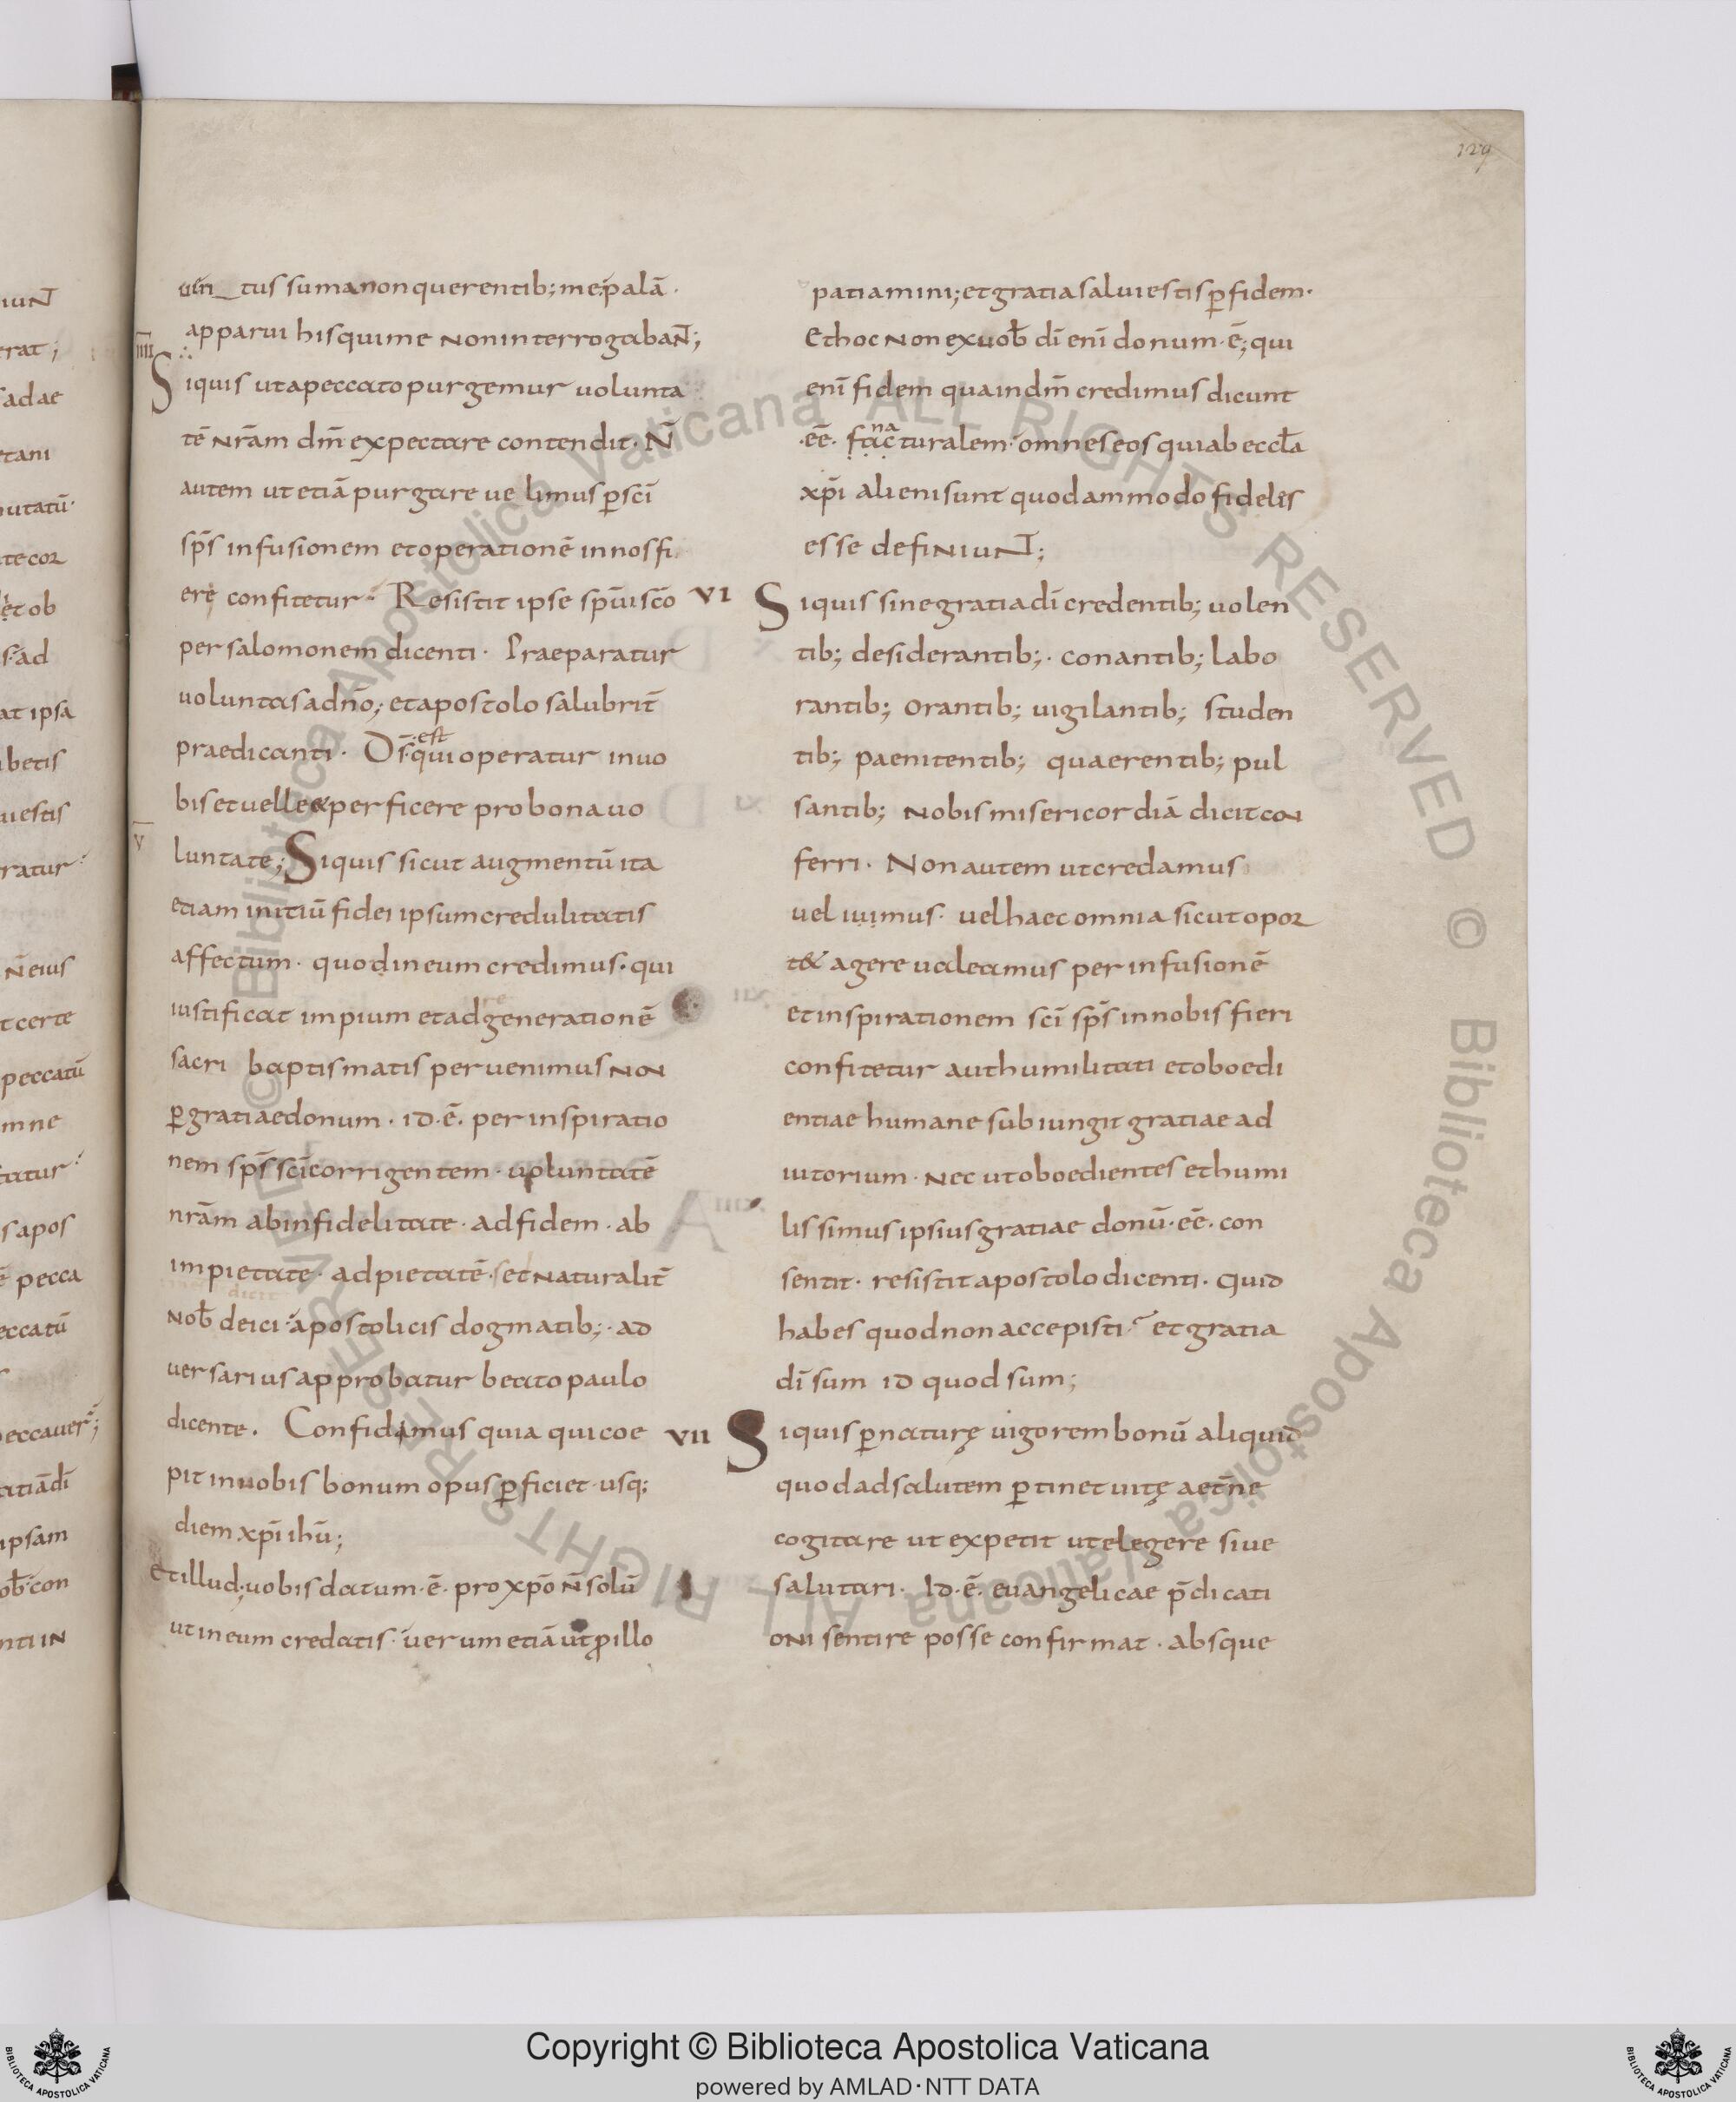 129
uen_tus sum a non querentib; me; palā ·
apparui his qui me non interrogabaNT;
IIII
Siquis ut a peccato purgemur uolunta
tē nr̄am dm̄ expectare contendit · N̄
autem ut etiā purgare uelimus ꝑ sc̄i
sp̄s infusionem et operationē in nos fi
ere confitetur · Resistit ipse sp̄ui sc̄o
per salomonem dicenti · Praeparatur
uoluntas a dn̄o; et apostolo salubrit̄
praedicanti · Ds̄ ·est· qui operatur in uo
bis et uelle & perficere pro bona uo
V
luntate; Siquis sicut augmentū ita
etiam initiū fidei ipsum credulitatis
affectum · quod in eum credimus · qui
iustificat impium et ad generationē
sacri baptismatis peruenimus non
ꝑ gratiae donum · id · ē · per inspiratio
nem sp̄s sc̄i corrigentem · uoluntatē
nr̄am ab infidelitate · ad fidem · ab
impietate · ad pietatē · set naturalit̄
nob̄ deici · apostolicis dogmatib; · ad
uersarius approbatur beato paulo
dicente · Confidamus quia qui coe
pit in uobis bonum opus ꝑficiet · usq;
diem xp̄i ih̄u;
Et illud; uobis datum · ē · pro xp̄o n̄ solū
ut in eum credatis · uerum etiā ut ꝓ illo
patiamini; et gratia salui estis ꝑ fidem ·
Et hoc non ex uob̄ dī enī donum · ē; qui
enī fidem qua in dm̄ credimus dicunt
·eē· facturalem na omnes eos qui ab eccl̄a
xp̄i alieni sunt quodammodo fideles
esse definiuNT;
VI Siquis sine gratia dī credentib; uolen
tib; desiderantib; · conantib; labo
rantib; orantib; uigilantib; studen
tib; paenitentib; quaerentib; pul
santib; nobis misericordiā dicit con
ferri · Non autem ut credamus
uel uiimus · uel haec omnia sicut opor
t& agere ualeamus per infusionē
et inspirationem sc̄i sp̄s in nobis fieri
confitetur aut humilitati et oboedi
entiae humane subiungit gratiae ad
iutorium · nec ut oboedientes et humi
lissimus ipsius gratiae donū · eē · con
sentit · resistit apostolo dicenti · Quid
habes quod non accepisti · et gratia
dī sum id quod sum;
VII Siquis ꝑ naturę uigorem bonū aliquid
quod ad salutem ꝑtinet uitę aet̄ne
cogitare ut expetit ut elegere siue
salutari · Id · ē · euangelicae p̄dicati
oni sentire posse confirmat · absque
Copyright © Biblioteca Apostolica Vaticana
powered by AMLAD·NTT DATA